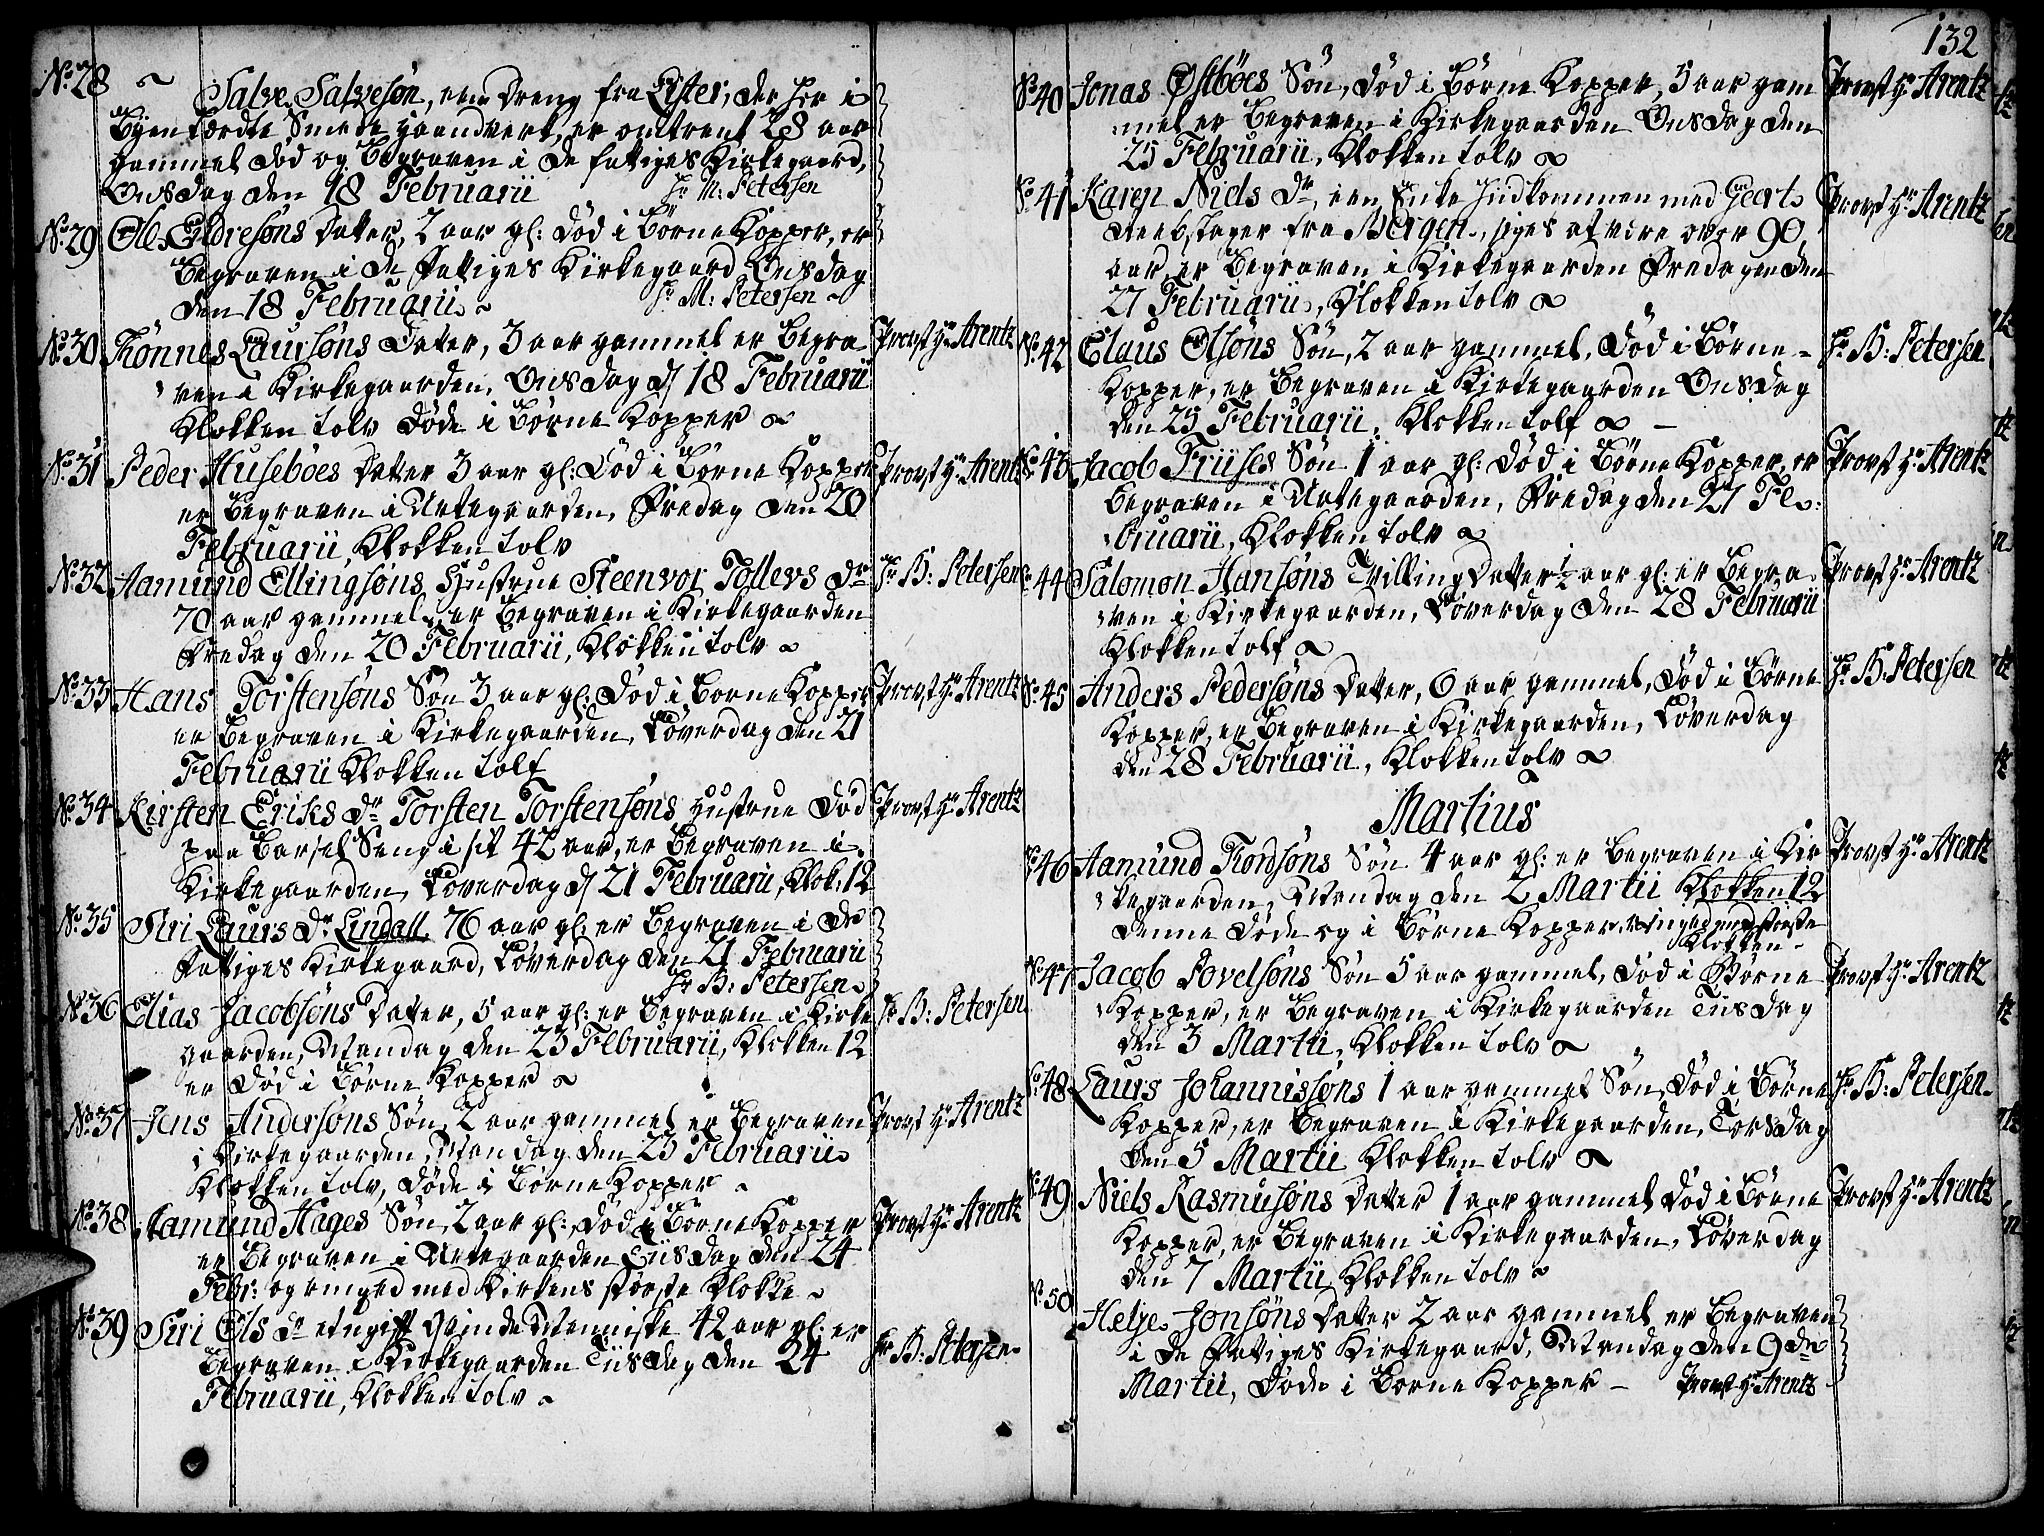 No 28 Salve Salvesøn, een Dreng fra Lister, der her i
Byen lærdte Smede Haandverk, er omtrent 28 aar
gammel død og Begraven i de fattiges Kirkegaard,
Onsdag den 18 Februarii Hr M: Petersen
No 29 Ole Eldresøns Datter, 2 aar gl: død i Børne Kopper, er
Begraven i de Fattiges Kirkegaard Onsdag
den 18 Februarii Hr M: Petersen
No 30 Tønnes Laursøns Datter, 3 aar gammel er Begra- Provst Hr Arentz
ven i Kirkegaarden, Onsdag d 18 Februarii
Klokken tolv døde i Børne Kopper
No 31 Peder Husebøes Datter 3 aar gl: Død i Børne Kopper Provst Hr Arentz
er Begraven i Urtegaarden, Fredag den 20
Februarii, Klokken tolv
No 32 Aamund Ellingsøns Hustrue Steenvor Tollevs Dr Hr B: Petersen
70 aar gammel, er Begraven i Kirkegaarden
Fredag den 20 Februarii, Klokken tolv
No 33 Hans Torstensøns Søn 3 aar gl: Død i Børne Kopper Provst Hr Arentz
er Begraven i Kirkegaarden, Løverdag den 21
Februarii Klokken tolf
No 34 Kirsten Eriks Dr Torsten Torstensøns Hustrue Død Provst Hr Arentz
paa Barsel Seng i sit 42 aar, er Begraven i
Kirkegaarden, Løverdag d 21 Februarii, Klok: 12
No 35 Siri Laurs Dr Lindall, 76 aar gl: er Begraven i de
Fattiges Kirkegaard, Løverdag den 21 Februarii
Hr B: Petersen
No 36 Elias Jacobsøns Datter, 5 aar gl: er Begraven i Kirke Hr B: Petersen
gaarden, Mandag den 23 Februarii, Klokken 12
er Død i Børne Kopper
No 37 Jens Andersøns Søn, 2 aar gammel er Begraven Provst Hr Arentz
i Kirkegaarden, Mandag den 23 Februarii
Klokken tolv, døde i Børne Kopper
No 38 Aamund Hages Søn, 2 aar gl: død i Børne Kopper Provst Hr Arentz
er Begraven i Urtegaarden Tiisdag den 24
Febr: og ringed med Kirkens største Klokke
No 39 Siri Ols Dr et ugift Qvinde Menniske 42 aar gl: er
Begraven i Kirkegaarden Tiisdag den 24 Hr B: Petersen
Februarii, Klokken tolv
132
No 40 Jonas Østbøes Søn, Død i Børne Kopper, 5 aar gam Provst Hr Arentz
mel er Begraven i Kirkegaarden Onsdag den
25 Februarii, Klokken tolv
No 41 Karen Niels Dr, een Enke Indkommen med Geert Provst Hr Arentz
Reebslager fra Bergen, siges at være over 90
aar, er Begraven i Kirkegaarden Fredagen den
27 Februarii, Klokken tolv
No 42 Claus Olsøns Søn, 2 aar gammel, Død i Børne Hr B: Petersen
Kopper, er Begraven i Kirkegaarden Onsdag
den 25 Februarii, Klokken tolf
No 43 Jacob Friises Søn 1 aar gl: Død i Børne Kopper, er Provst Hr Arentz
Begraven i Urtegaarden, Fredag den 27 Fe:
bruarii, Klokken tolv
No 44 Salomon Hansøns Tvilling Datter ½ aar gl: er Begra- Provst Hr Arentz
ven i Kirkegaarden, Løverdag den 28 Februarii
Klokken tolf
No 45 Anders Pedersøns Datter, 6 aar gammel, Død i Børne Hr B: Petersen
Kopper, er Begraven i Kirkegaarden, Løverdag
den 28 Februarii, Klokken tolv
Martius
No 46 Aamund Tordsøns Søn 4 aar gl: er Begraven i Kir Provst Hr Arentz
kegaarden, Mandag den 2 Martii Klokken 12
denne døde og i Børne Kopper, ringed med største
Klokken
No 47 Jacob Povelsøns Søn 5 aar gammel, død i Børne Provst Hr Arentz
Kopper, er Begraven i Kirkegaarden Tiisdag
den 3 Martii, Klokken tolv
No 48 Laurs Johannissøns 1 aar gammel Søn, Død i Børne Hr B: Petersen
Kopper, er Begraven i Kirkegaarden, Torsdag
den 5 Martii Klokken tolv
No 49 Niels Rasmusøns Datter 1 aar gammel Død i Børne Provst Hr Arentz
Kopper, er Begraven i Kirkegaarden, Løverdag
den 7 Martii, Klokken tolv
No 50 Helje Jonsøns Datter 2 aar gammel er Begraven
i de Fattiges Kirkegaard, Mandag den 9de
Martii, Døde i Børne Kopper Provst Hr Arentz